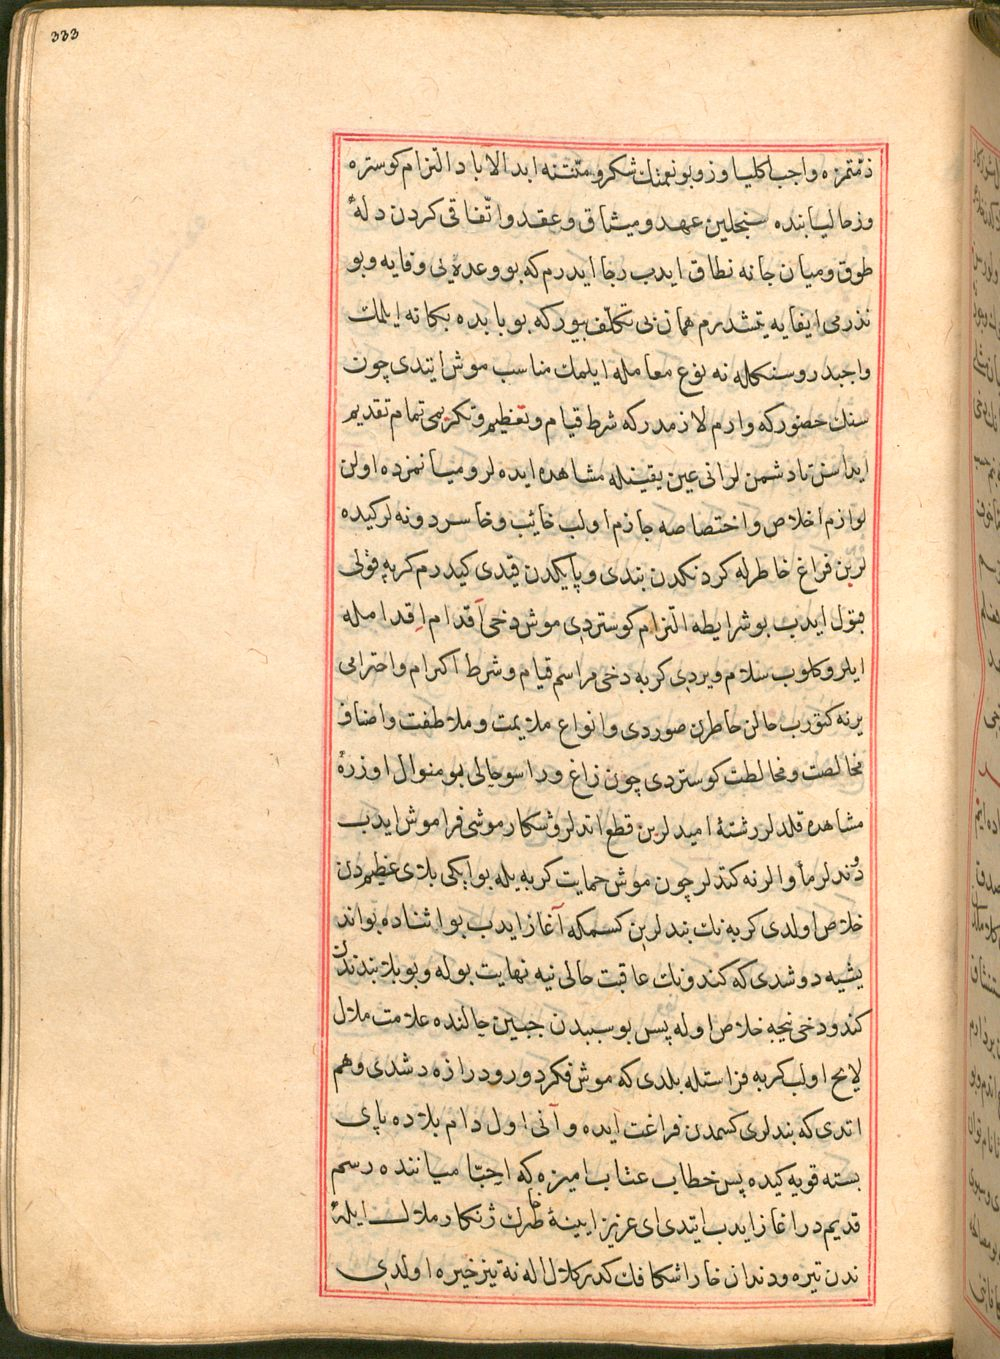 333
ذمتمزه واجب اكليا وز وبو نعمتك شكر و منتنه ابد الاباد التزام كوستره
وز حاليا بنده سنجلين عهد و ميثاق و عقد و اتفاقى كردن دله
طوق و ميان جانه نطاق ايدب رجا ايدرم كه بو وعده يى وقايه و بو
نذرمى ايفايه يتشدرم همان بى تكلف بيور كه بو بابده بكا نه ايلمك
واجبدر و سنكله نه نوع معامله ايلمك مناسب موش ايتدى چون
سنك حضوركه وارم لازمدر كه شرط قيام و تعظيم و تكريمى تمام تقديم
ايداسن تا دشمن لر انى عين يقينله مشاهده ايده لر و ميانمزده اولن
لوازم اخلاص و اختصاصه جازم اولب خائب و خاسر دونه لر كيده
لر بن فراغ خاطرله كردنكدن بندى و پايكدن قيدى كيدرم كربه قولى
قبول ايدب بو شرايطه التزام كوستردى موش دخى اقدام اقدامله
ايلرو كلوب سلام ويردى كربه دخى مراسم قيام و شرط اكرام و احترامى
يرنه كتورب حالن خاطرن صوردى و انواع ملايمت و ملاطفت و اصناف
مخالصت و مخالطت كوستردى چون زاغ و راسو حالى بو منوال اوزره
مشاهده قلدلر رشتۀ اميدلرين قطع اتدلر و شكار موشى فراموش ايدب
دوندلر مأوالرنه كتدلر چون موش حمايت كربه يله بو ايكى بلاى عظيمدن
خلاص اولدى كربه نك بندلرين كسمكه آغاز ايدب بو اثناده بو اند
يشيه دوشدى كه كندونك عاقبت حالى نيه نهايت بوله و بو بلا بندندن
كندو دخى نيجه خلاص اوله پس بو سببدن جبين حالنده علامت ملال
لايح اولب كربه فراستله بلدى كه موش فكر دور و درازه دشدى وهم
اتدى كه بندلرى كسمدن فراغت ايده و آنى اول دام بلاده پاى
بسته قويه كيده پس خطاب عتاب اميزه كه احبا مياننده رسم
قديمدر اغاز ايدب ايتدى اى عزيز ايينۀ خاطرك ژنكار ملالت ايله
ندن تيره و دندان خارا شكافك كدر كلال اله نه تيز خيره اولدى